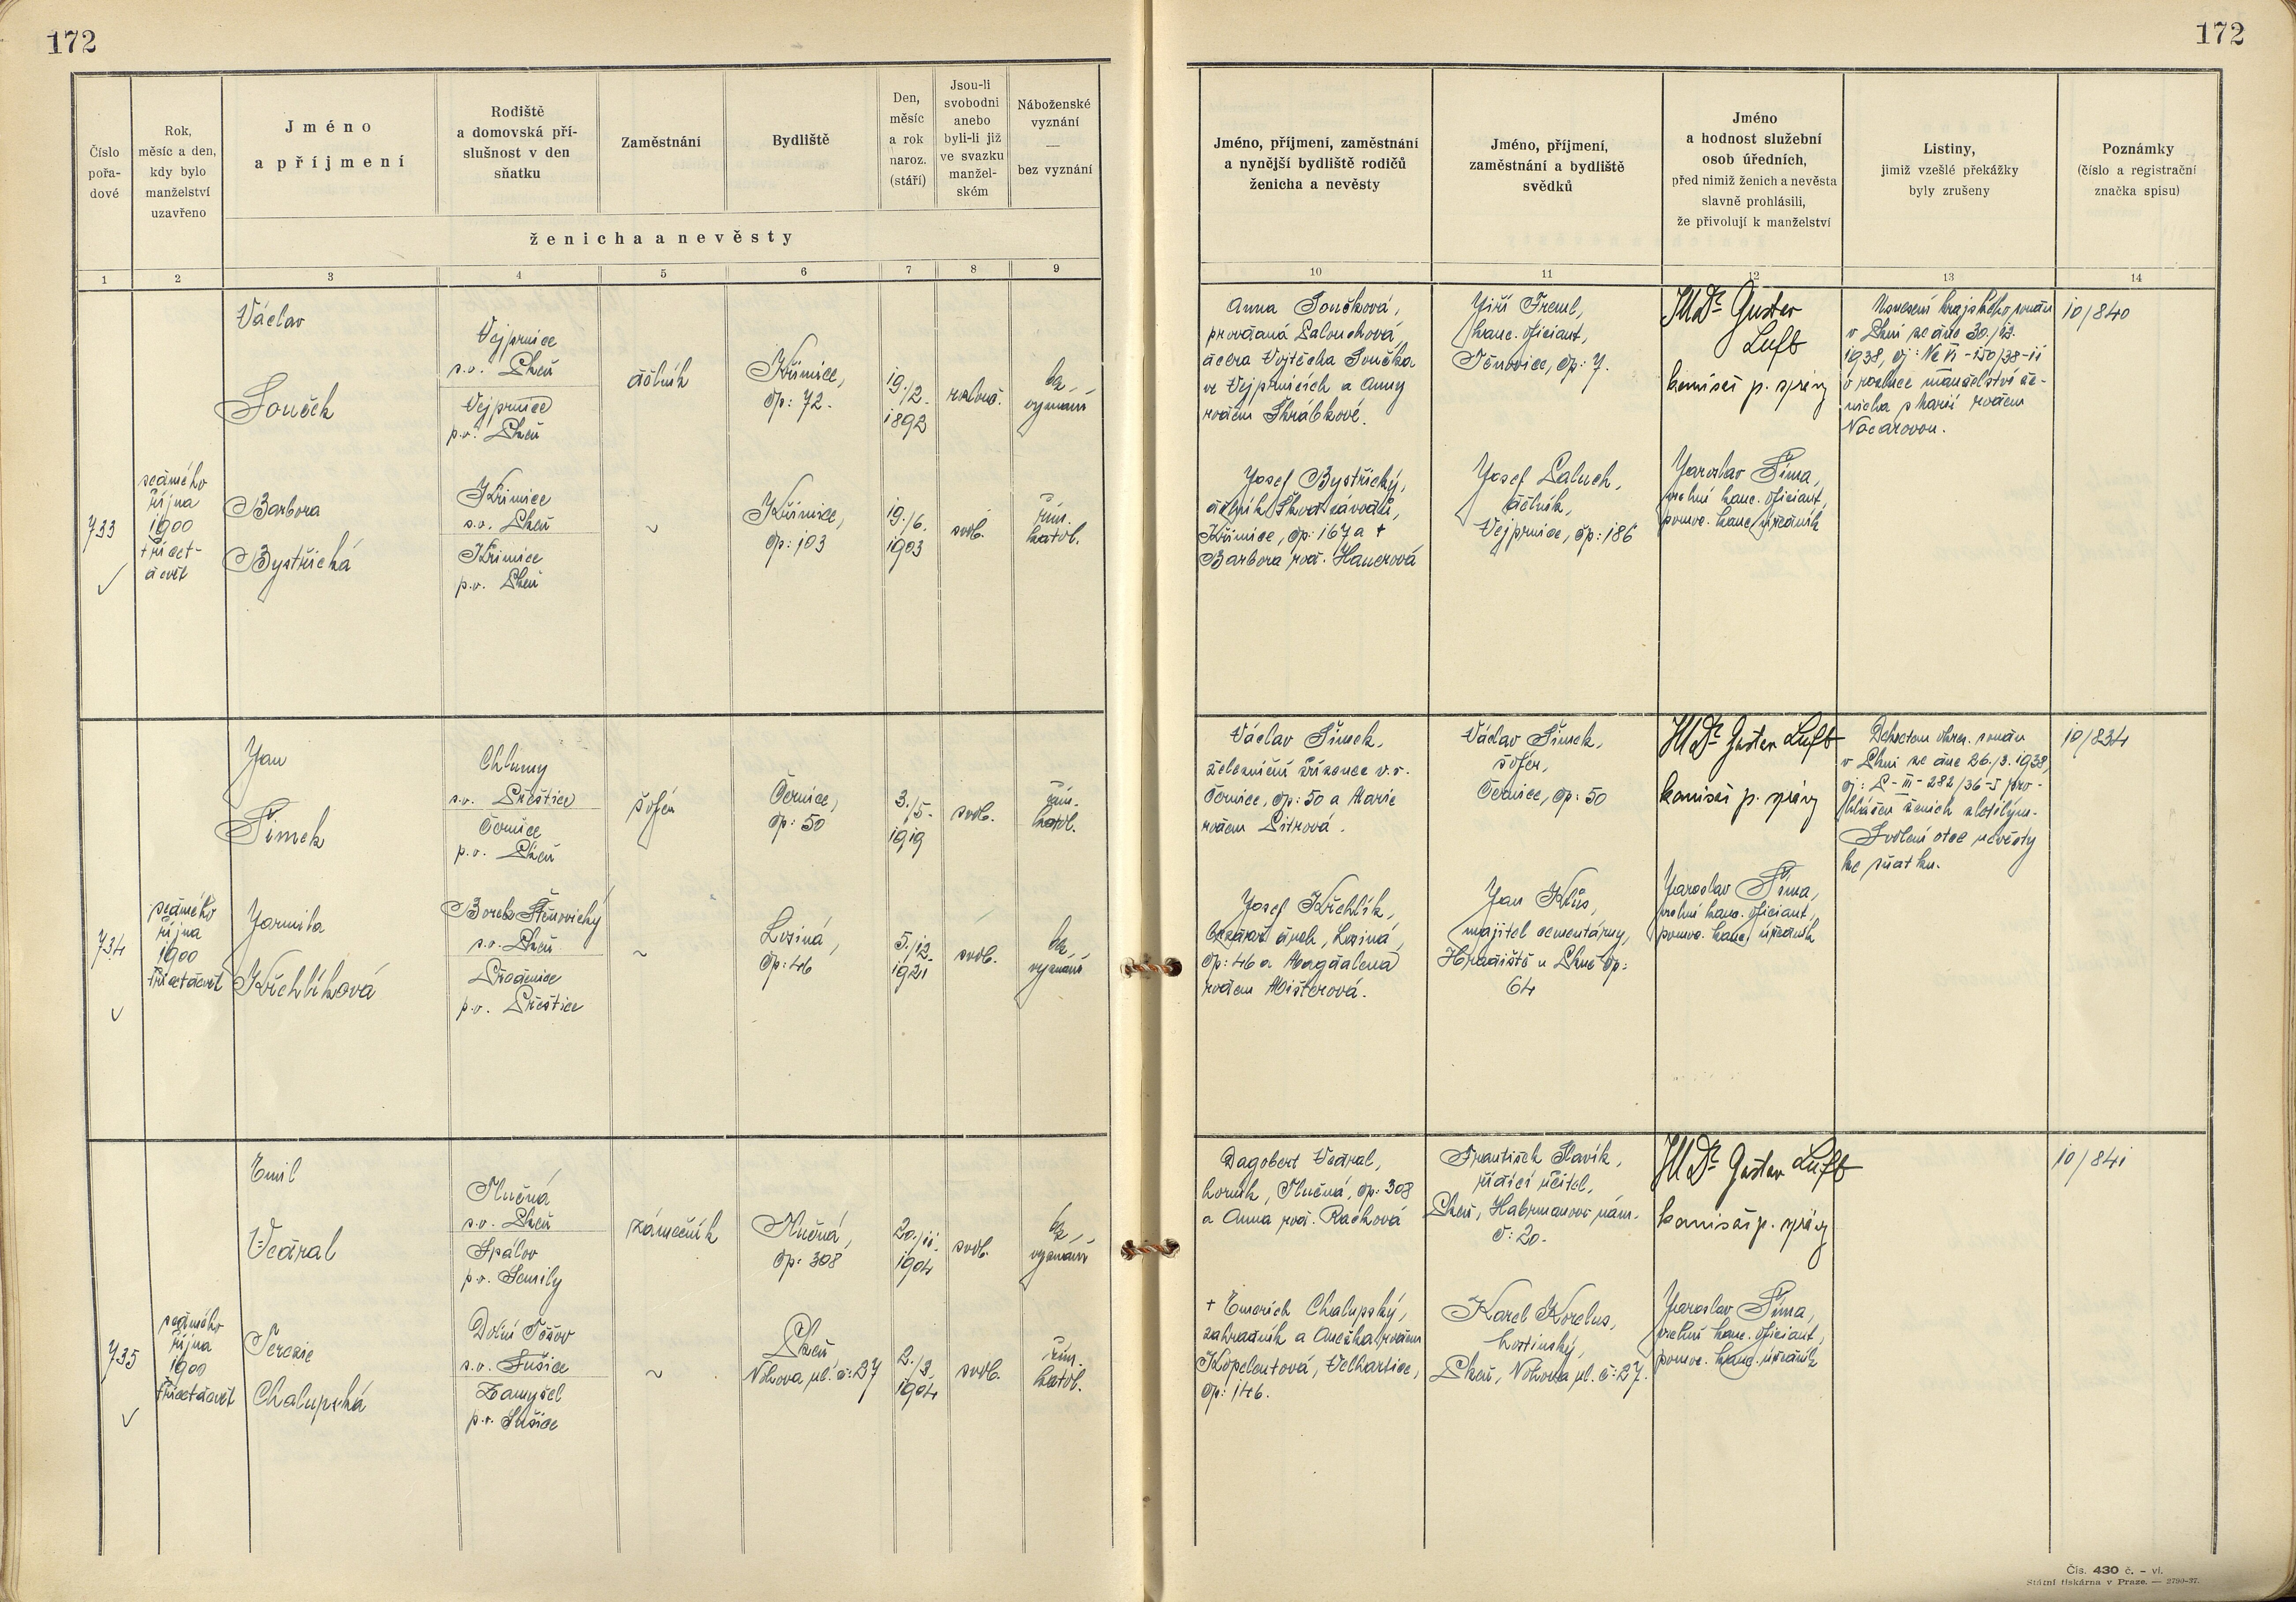 172
172
Číslo
pořa-
dové
Rok,
měsíc a den,
kdy bylo
manželství
uzavřeno
Jméno
a příjmení
Rodiště
a domovská pří-
slušnost v den
sňatku
Zaměstnání
Bydliště
Den,
měsíc
a rok
naroz.
(stáří)
Jsou-li
svobodni
anebo
byli-li již
ve svazku
manžel-
ském
Náboženské
vyznání
—
bez vyznání
ženicha a nevěsty
Jméno, příjmení, zaměstnání
a nynější bydliště rodičů
ženicha a nevěsty
Jméno, příjmení,
zaměstnání a bydliště
svědků
Jméno
a hodnost služební
osob úředních,
před nimiž ženich a nevěsta
slavně prohlásili,
že přivolují k manželství
Listiny,
jimiž vzešlé překážky
byly zrušeny
Poznámky
(číslo a registrační
značka spisu)
1 2 3 4 5 6 7 8 9
10 11 12 13 14
733
sedmého
října
1900
třicet-
devět
Václav
Souček
Vejprnice
s.o. Plzeň
Vejprnice
p.o. Plzeň
dělník
Křimice,
čp: 72.
19./2.
1892
rozlouč.
bez
vyznání
Barbora
Bystřická
Křimice
s.o. Plzeň
Křimice
p.o. Plzeň
~
Křimice,
čp: 103
19./6.
1903
svob.
řím.
katol.
Anna Součková,
provdaná Palouchová,
dcera Vojtěcha Součka
ve Vejprnicích a Anny
rodem Škrábkové.
Josef Bystřický,
dělník Škod. závodů,
Křimice, čp: 167 a +
Barbora rod. Hanerová
Jiří Treml,
kanc. oficiant,
Těnovice, čp: 7.
Josef Paluch,
dělník,
Vejprnice, čp: 186
JUDr. Gustav
Luft
komisař p. správy
Jaroslav Šíma,
vrchní kanc. oficiant,
pomoc. kanc. úředník
Usnesení krajského soudu
v Plzni ze dne 30./12.
1938, čj: Nc VI - 150/38-11
o rozluce manželství že-
nicha s Marií rodem
Nocarovou.
10/840
734
sedmého
října
1900
třicetdevět
Jan
Šimek
Chlumy
s.o. Přeštice
Černice
p.o. Plzeň
šofér
Černice,
čp: 50
3./5.
1919
svob.
řím.
katol.
Jarmila
Křehlíková
Borek Štěnovický
s.o. Plzeň
Předenice
p.o. Přeštice
~
Losiná,
čp: 46
5./12.
1921
svob.
bez
vyznání
Václav Šimek,
železniční zřízenec v.v.
Černice, čp: 50 a Marie
rodem Pitrová.
Josef Křehlík,
cestář drah, Losiná,
čp: 46 a Magdalena
rodem Mišterová.
Václav Šimek,
šofér,
Černice, čp: 50
Jan Kůs,
majitel cementárny,
Hradiště u Plzně čp:
64
JUDr. Gustav Luft
komisař p. správy
Jaroslav Šíma,
vrchní kanc. oficiant,
pomoc. kanc. úředník
Dekretem okres. soudu
v Plzni ze dne 26./3. 1938,
čj: P - III - 282/36-5 pro-
hlášen ženich zletilým.
Svolení otce nevěsty
ke sňatku.
10/834
735
sedmého
října
1900
třicetdevět
Emil
Vedral
Tlučná
s.o. Plzeň
Spálov
p.o. Semily
zámečník
Tlučná,
čp: 308
20./11.
1904
svob.
bez
vyznání
Terezie
Chalupská
Dolní Těšov
s.o. Sušice
Zamyšl
p.o. Sušice
~
Plzeň
Nohova ul. č: 27
2./3.
1904
svob.
řím.
katol.
Dagobert Vedral,
horník, Tlučná, čp: 308
a Anna rod. Racková
+ Emerich Chalupský,
zahradník a Anežka rodem
Kopelentová, Velhartice,
čp: 146.
František Slavík,
řídící učitel,
Plzeň, Habrmanovo nám.
č: 20.
Karel Korelus,
hostinský,
Plzeň, Nohova ul. č: 27.
JUDr. Gustav Luft
komisař p. správy
Jaroslav Šíma,
vrchní kanc. oficiant,
pomoc. kanc. úředník
10/841
Čís. 430 č. - vl.
Státní tiskárna v Praze. — 2790-37.